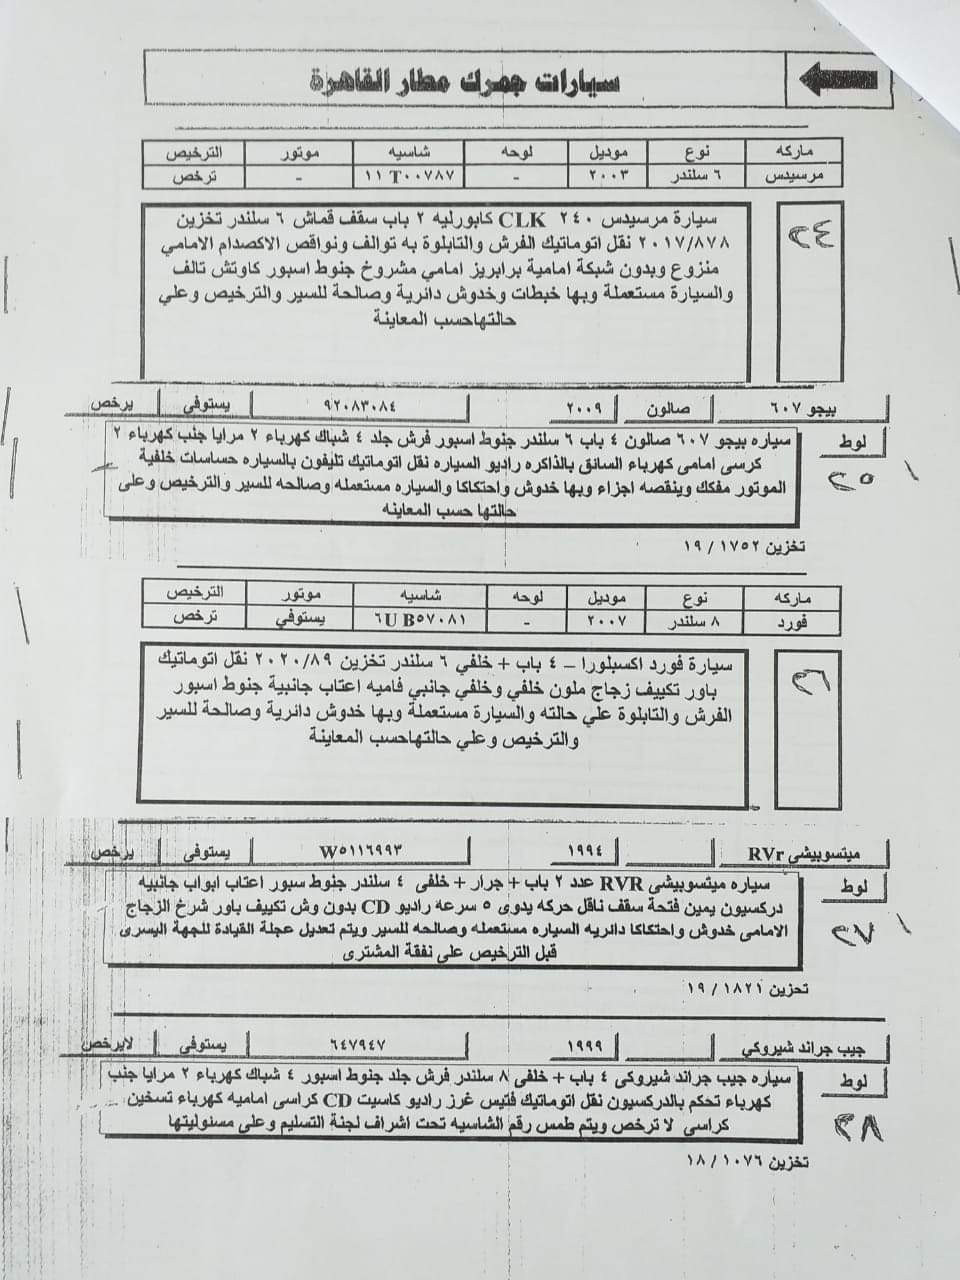 سيارات جمرك مطار القاهرة
ماركه نوع موديل لوحه شاسيه موتور الترخيص
مرسيدس ٦ سلندر ٢٠٠٣ - ١١ T٠٠٧٨٧ - ترخص
٢٤
سيارة مرسيدس ٢٤٠ CLK كابورليه ٢ باب سقف قماش ٦ سلندر تخزين
٢٠١٧/٨٧٨ نقل اتوماتيك الفرش والتابلوة به توالف ونواقص الاكصدام الامامي
منزوع وبدون شبكة امامية برابريز امامي مشروخ جنوط اسبور كاوتش تالف
والسيارة مستعملة وبها خبطات وخدوش دائرية وصالحة للسير والترخيص وعلي
حالتهاحسب المعاينة
بيجو ٦٠٧ صالون ٢٠٠٩ ٩٢٠٨٣٠٨٤ يستوفي يرخص
لوط
٢٥
سياره بيجو ٦٠٧ صالون ٤ باب ٦ سلندر جنوط اسبور فرش جلد ٤ شباك كهرباء ٢ مرايا جنب كهرباء ٢
كرسى امامى كهرباء السائق بالذاكره راديو السياره نقل اتوماتيك تليفون بالسياره حساسات خلفية
الموتور مفكك وينقصه اجزاء وبها خدوش واحتكاكا والسياره مستعمله وصالحه للسير والترخيص وعلى
حالتها حسب المعاينه
تخزين ١٧٥٢ / ١٩
ماركه نوع موديل لوحه شاسيه موتور الترخيص
فورد ٨ سلندر ٢٠٠٧ - ٦U B٥٧٠٨١ يستوفي ترخص
٢٦
سيارة فورد اكسبلورا – ٤ باب + خلفي ٦ سلندر تخزين ٢٠٢٠/٨٩ نقل اتوماتيك
باور تكييف زجاج ملون خلفي وخلفي جانبي فاميه اعتاب جانبية جنوط اسبور
الفرش والتابلوة علي حالته والسيارة مستعملة وبها خدوش دائرية وصالحة للسير
والترخيص وعلي حالتهاحسب المعاينة
ميتسوبيشى RVr ١٩٩٤ W٥١١٦٩٩٣ يستوفي يرخص
لوط
٢٧
سياره ميتسوبيشى RVR عدد ٢ باب + جرار + خلفى ٤ سلندر جنوط سبور اعتاب ابواب جانبيه
دركسيون يمين فتحة سقف ناقل حركه يدوى ٥ سرعه راديو CD بدون وش تكييف باور شرخ الزجاج
الامامى خدوش واحتكاكا دائريه السياره مستعمله وصالحه للسير ويتم تعديل عجلة القيادة للجهة اليسرى
قبل الترخيص على نفقة المشترى
تخزين ١٨٢١ / ١٩
جيب جراند شيروكي ١٩٩٩ ٦٤٧٩٤٧ يستوفي لايرخص
لوط
٢٨
سياره جيب جراند شيروكى ٤ باب + خلفى ٨ سلندر فرش جلد جنوط اسبور ٤ شباك كهرباء ٢ مرايا جنب
كهرباء تحكم بالدركسيون نقل اتوماتيك فتيس غرز راديو كاسيت CD كراسى اماميه كهرباء تسخين
كراسى لا ترخص ويتم طمس رقم الشاسيه تحت اشراف لجنة التسليم وعلى مسئوليتها
تخزين ١٠٧٦ / ١٨